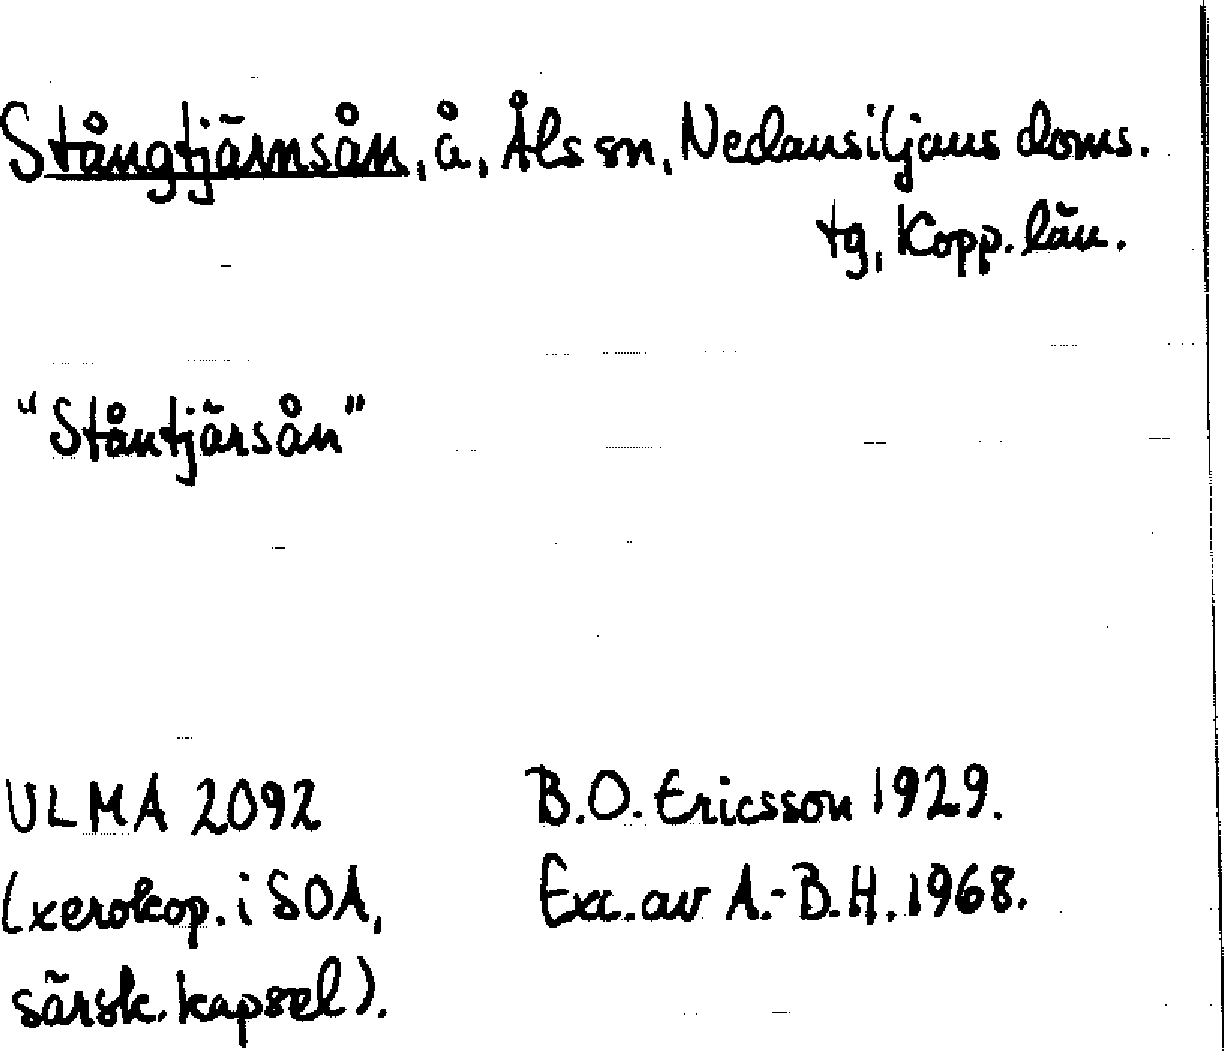 Stångtjärnsån, å, Åls sn, Nedansiljans doms.
tg, Kopp. län.
"Ståntjärsån"
ULMA 2092 B.O. Ericsson 1929.
(xerokop. i SOA, Exc. av A.-B.H. 1968.
särsk. kapsel).